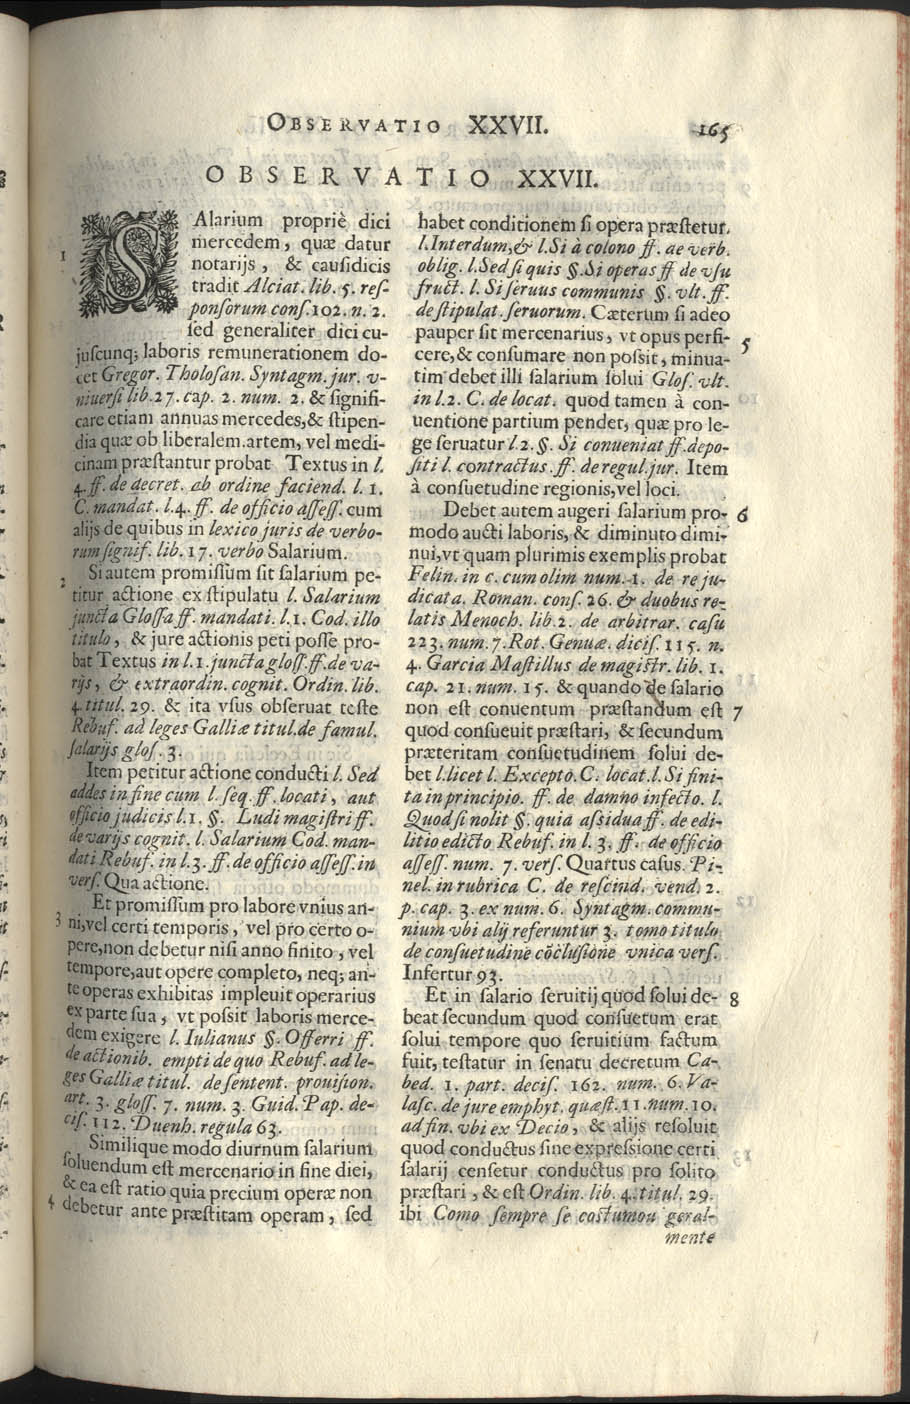 OBSERVATIO XXVII. 165
OBSERVATIO XXVII.
SAlarium propriè dici
mercedem, quæ datur
1 notarijs, & cauſidicis
tradit Alciat. lib. 5. reſ-
ponſorum conſ. 102. n. 2.
ſed generaliter dici cu-
juſcunq; laboris remunerationem do-
cet Gregor. Tholoſan. Syntagm. jur. v-
niuerſi lib. 27. cap. 2. num. 2. & ſignifi-
care etiam annuas mercedes, & ſtipen-
dia quæ ob liberalem.artem, vel medi-
cinam præſtantur probat Textus in l.
4. ff. de decret. ab ordine faciend. l. 1.
C. mandat. l. 4. ff. de officio aſſeſſ. cum
alijs de quibus in lexico juris de verbo-
rum ſignif. lib. 17. verbo Salarium.
2 Si autem promiſſum ſit ſalarium pe-
titur actione ex ſtipulatu l. Salarium
juncta Gloſſa ff. mandati. l. 1. Cod. illo
titulo, & jure actionis peti poſſe pro-
bat Textus in l. 1. juncta gloſſ. ff. de va-
rijs, & extraordin. cognit. Ordin. lib.
4. titul. 29. & ita vſus obſeruat teſte
Rebuf. ad leges Galliæ titul. de famul.
ſalarijs gloſ. 3.
Item petitur actione conducti l. Sed
addes in fine cum l. ſeq. ff. locati, aut
officio judicis l. 1. §. Ludi magiſtri ff.
de varijs cognit. l. Salarium Cod. man-
dati Rebuf. in l. 3. ff. de officio aſſeſſ. in
verſ. Qua actione.
Et promiſſum pro labore vnius an-
3 ni, vel certi temporis, vel pro certo o-
pere, non debetur niſi anno finito, vel
tempore, aut opere completo, neq; an-
te operas exhibitas impleuit operarius
ex parte ſua, vt poſſit laboris merce-
dem exigere l. Iulianus §. Offerri ff.
de actionib. empti de quo Rebuf. ad le-
ges Galliæ titul. de ſentent. prouiſion.
art. 3. gloſſ. 7. num. 3. Guid. Pap. de-
ciſ. 112. Duenh. regula 63.
Similique modo diurnum ſalarium
ſoluendum eſt mercenario in fine diei,
& ea eſt ratio quia precium operæ non
4 debetur ante præſtitam operam, ſed
habet conditionem ſi opera præſtetur.
l. Interdum, & l. Si à colono ff. de verb.
oblig. l. Sed ſi quis §. Si operas ff. de vſu
fruct. l. Si ſeruus communis §. vlt. ff.
de ſtipulat. ſeruorum. Cæterum ſi adeo
pauper ſit mercenarius, vt opus perfi-
cere, & conſumare non poſsit, minua- 5
tim debet illi ſalarium ſolui Gloſ. vlt.
in l. 2. C. de locat. quod tamen à con-
uentione partium pendet, quæ pro le-
ge ſeruatur l. 2. §. Si conueniat ff. depo-
ſiti l. contractus. ff. de regul. jur. Item
à conſuetudine regionis, vel loci.
Debet autem augeri ſalarium pro- 6
modo aucti laboris, & diminuto dimi-
nui, vt quam plurimis exemplis probat
Felin. in c. cum olim num. 1. de re ju-
dicata. Roman. conſ. 26. & duobus re-
latis Menoch. lib. 2. de arbitrar. caſu
223. num. 7. Rot. Genuæ. diciſ. 115. n.
4. Garcia Maſtillus de magiſtr. lib. 1.
cap. 21. num. 15. & quando de ſalario
non eſt conuentum præſtandum eſt 7
quod conſueuit præſtari, & ſecundum
præteritam conſuetudinem ſolui de-
bet l. licet l. Excepto. C. locat. l. Si fini-
ta in principio. ff. de damno infecto. l.
Quod ſi nolit §. quia aſsidua ff. de edi-
litio edicto Rebuf. in l. 3. ff. de officio
aſſeſſ. num. 7. verſ. Quartus caſus. Pi-
nel. in rubrica C. de reſcind. vend. 2.
p. cap. 3. ex num. 6. Syntagm. commu-
nium vbi alij referuntur 3. tomo titulo
de conſuetudine cõcluſione vnica verſ.
Infertur 93.
Et in ſalario ſeruitij quod ſolui de- 8
beat ſecundum quod conſuetum erat
ſolui tempore quo ſeruitium factum
fuit, teſtatur in ſenatu decretum Ca-
bed. 1. part. deciſ. 162. num. 6. Va-
laſc. de jure emphyt. quæſt. 11. num. 10.
ad fin. vbi ex Decio, & alijs reſoluit
quod conductus ſine expreſſione certi
ſalarij cenſetur conductus pro ſolito
præſtari, & eſt Ordin. lib. 4. titul. 29.
ibi Como ſempre ſe coſtumou geral-
mente